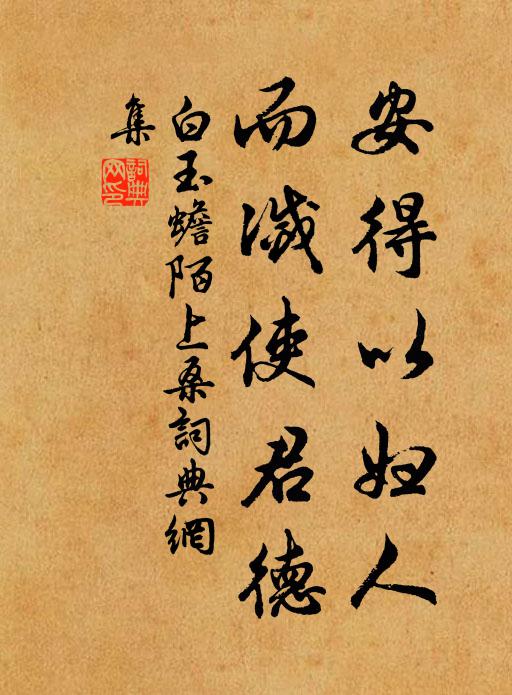 安得以妇人
而滅使君德
白玉蟾陌上桑詞典網
集
詞典网印